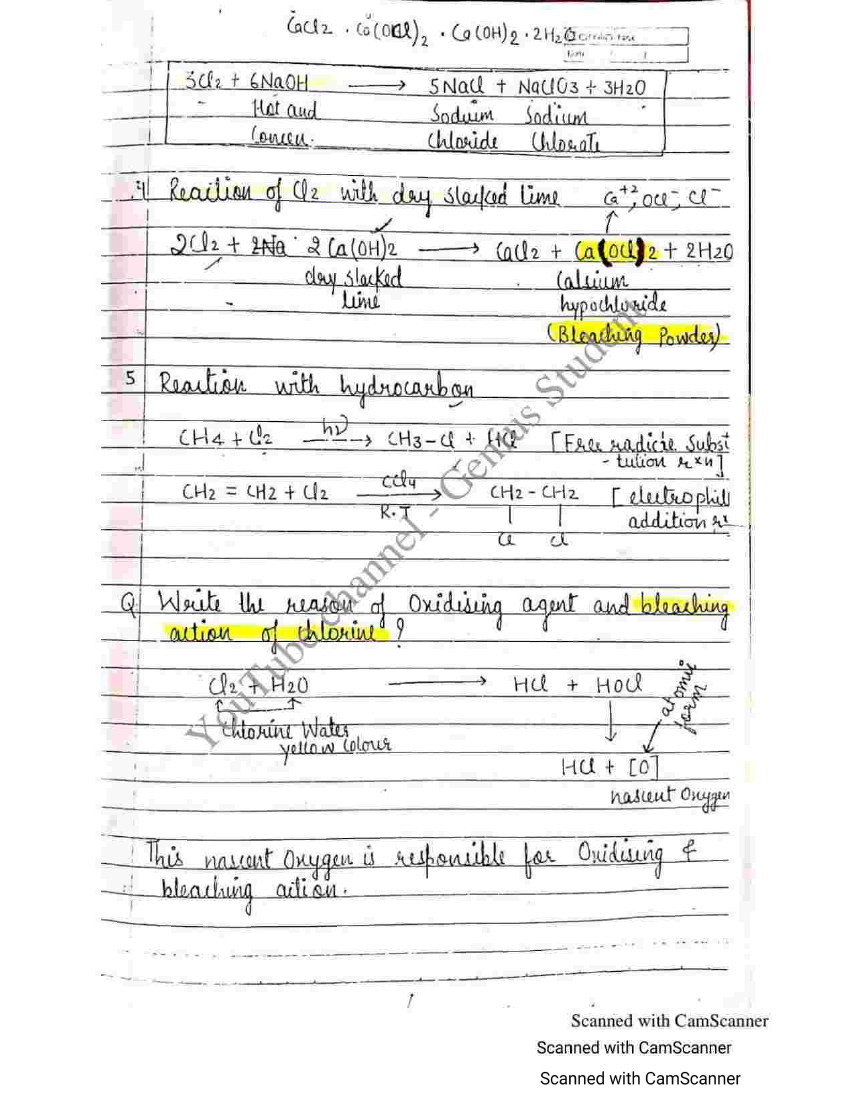 CaCl2 . Ca(OCl)2 . Ca(OH)2 . 2H2O
3Cl2 + 6NaOH ⟶ 5NaCl + NaClO3 + 3H2O
Hot and Sodium Sodium
Concen. Chloride Chlorate
4 Reaction of Cl2 with dry slacked lime Ca+2, OCl-, Cl-
2Cl2 + 2Ca(OH)2 ⟶ CaCl2 + Ca(OCl)2 + 2H2O
dry slacked Calsium
lime hypochloride
(Bleaching Powder)
5 Reaction with hydrocarbon
CH4 + Cl2 hν⟶ CH3-Cl + HCl [Free radicle Subst
- tution rxn]
CH2 = CH2 + Cl2 CCl4⟶ CH2 - CH2 [electrophil
R.T addition rx
Cl Cl
Q Write the reason of Oxidising agent and bleaching
action of chlorine?
Cl2 + H2O ⟶ HCl + HOCl
atomic form
Chlorine Water
yellow Colour
HCl + [O]
nascent Oxygen
This nascent Oxygen is responsible for Oxidising &
bleaching action.
YouTube channel - Genius Student
Scanned with CamScanner
Scanned with CamScanner
Scanned with CamScanner